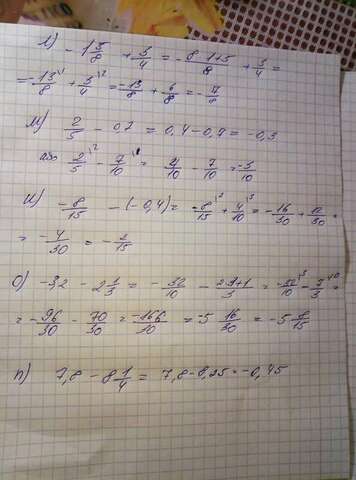 л) -1 5/8 + 3/4 = - 8·1+5/8 + 3/4 =
= -13/8 \1 + 3/4 \2 = -13/8 + 6/8 = -7/8
м) 2/5 - 0,7 = 0,4 - 0,7 = -0,3
2/5 \2 - 7/10 \1 = 4/10 - 7/10 = -3/10
н) -8/15 - (-0,4) = -8/15 \2 + 4/10 \3 = -16/30 + 12/30 =
= -4/30 = -2/15
о) -3,2 - 2 1/3 = -32/10 - 2·3+1/3 = -32/10 \3 - 7/3 \10 =
= -96/30 - 70/30 = -166/30 = -5 16/30 = -5 8/15
п) 7,8 - 8 1/4 = 7,8 - 8,25 = -0,45